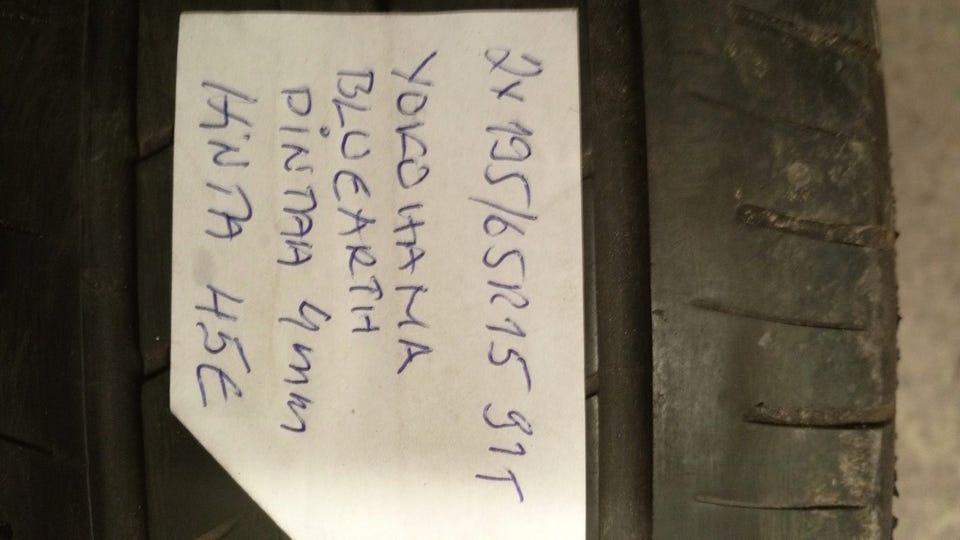 2x 195/65R15 91T
YOKOHAMA
BLUEARTH
PINTAA 4mm
HINTA 45E